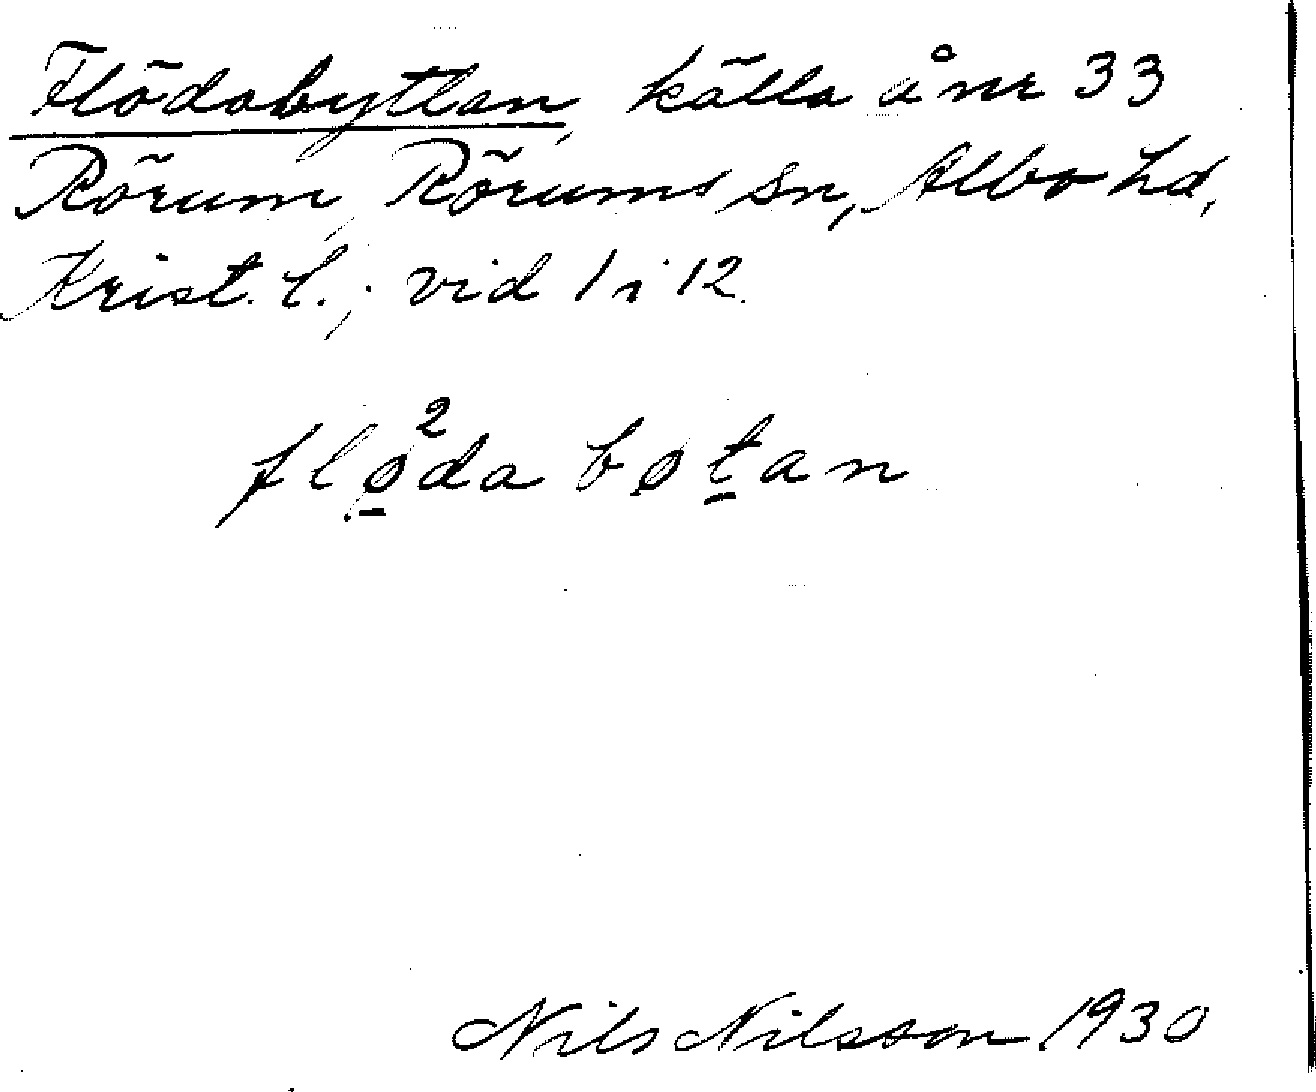 Flödabyttan, källa å nr 33
Rörum, Rörums sn, Albo hd,
Krist. l.; vid 1 i 12.
flø̱²da bøt̠an
Nils Nilsson 1930